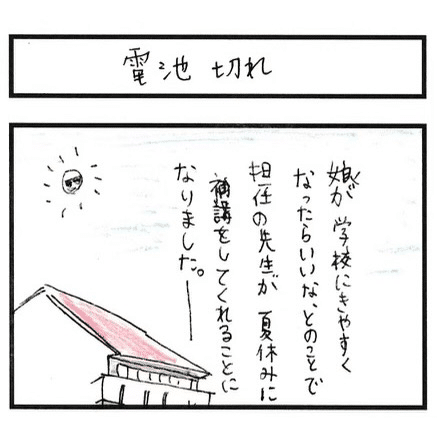 電池切れ
娘が学校にきやすく
なったらいいな、とのことで
担任の先生が夏休みに
補講をしてくれることに
なりました。